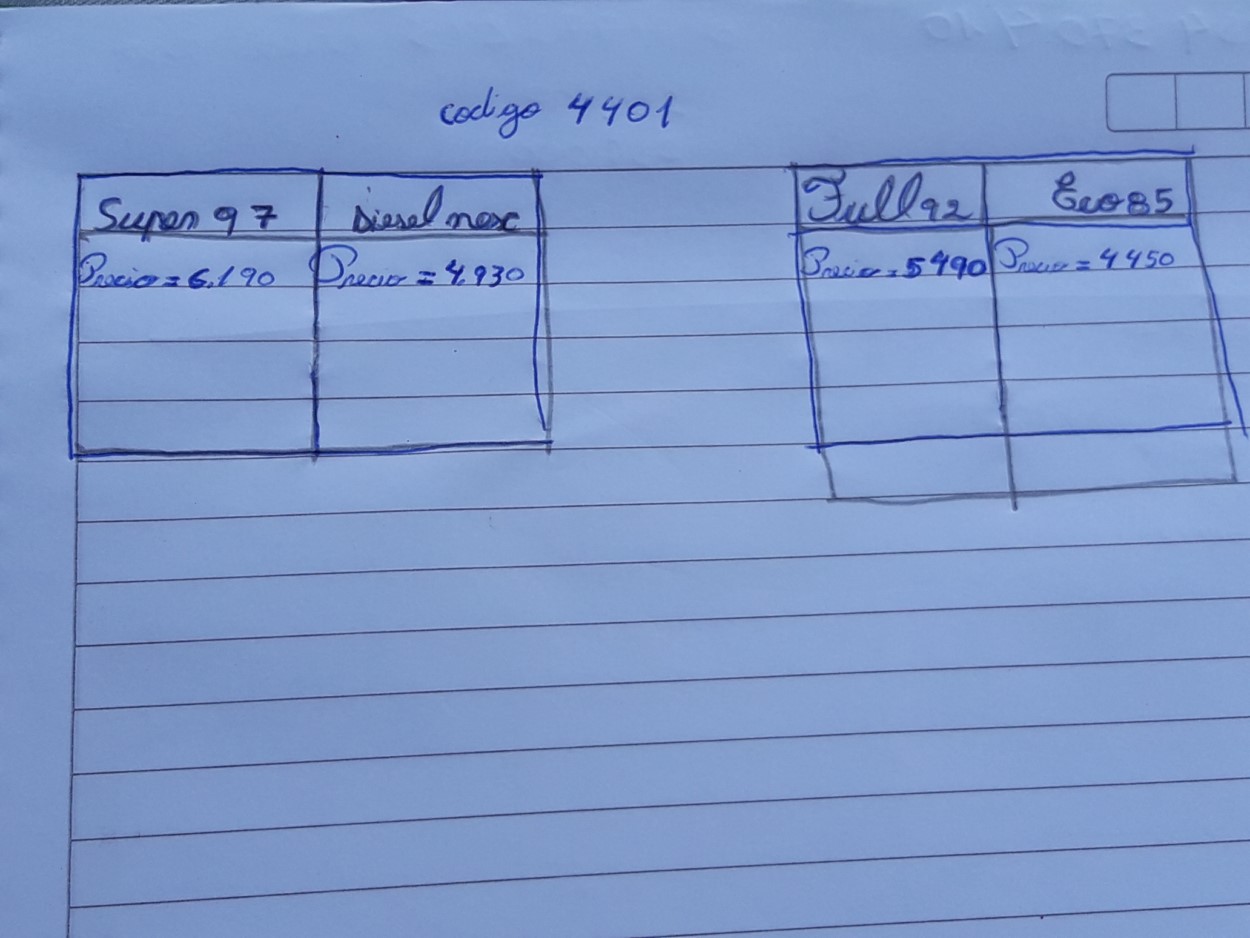 codigo 4401
Super 97 Diesel nexc Full 92 Eco 85
Precio = 6.190 Precio = 4.930 Precio = 5490 Precio = 4450